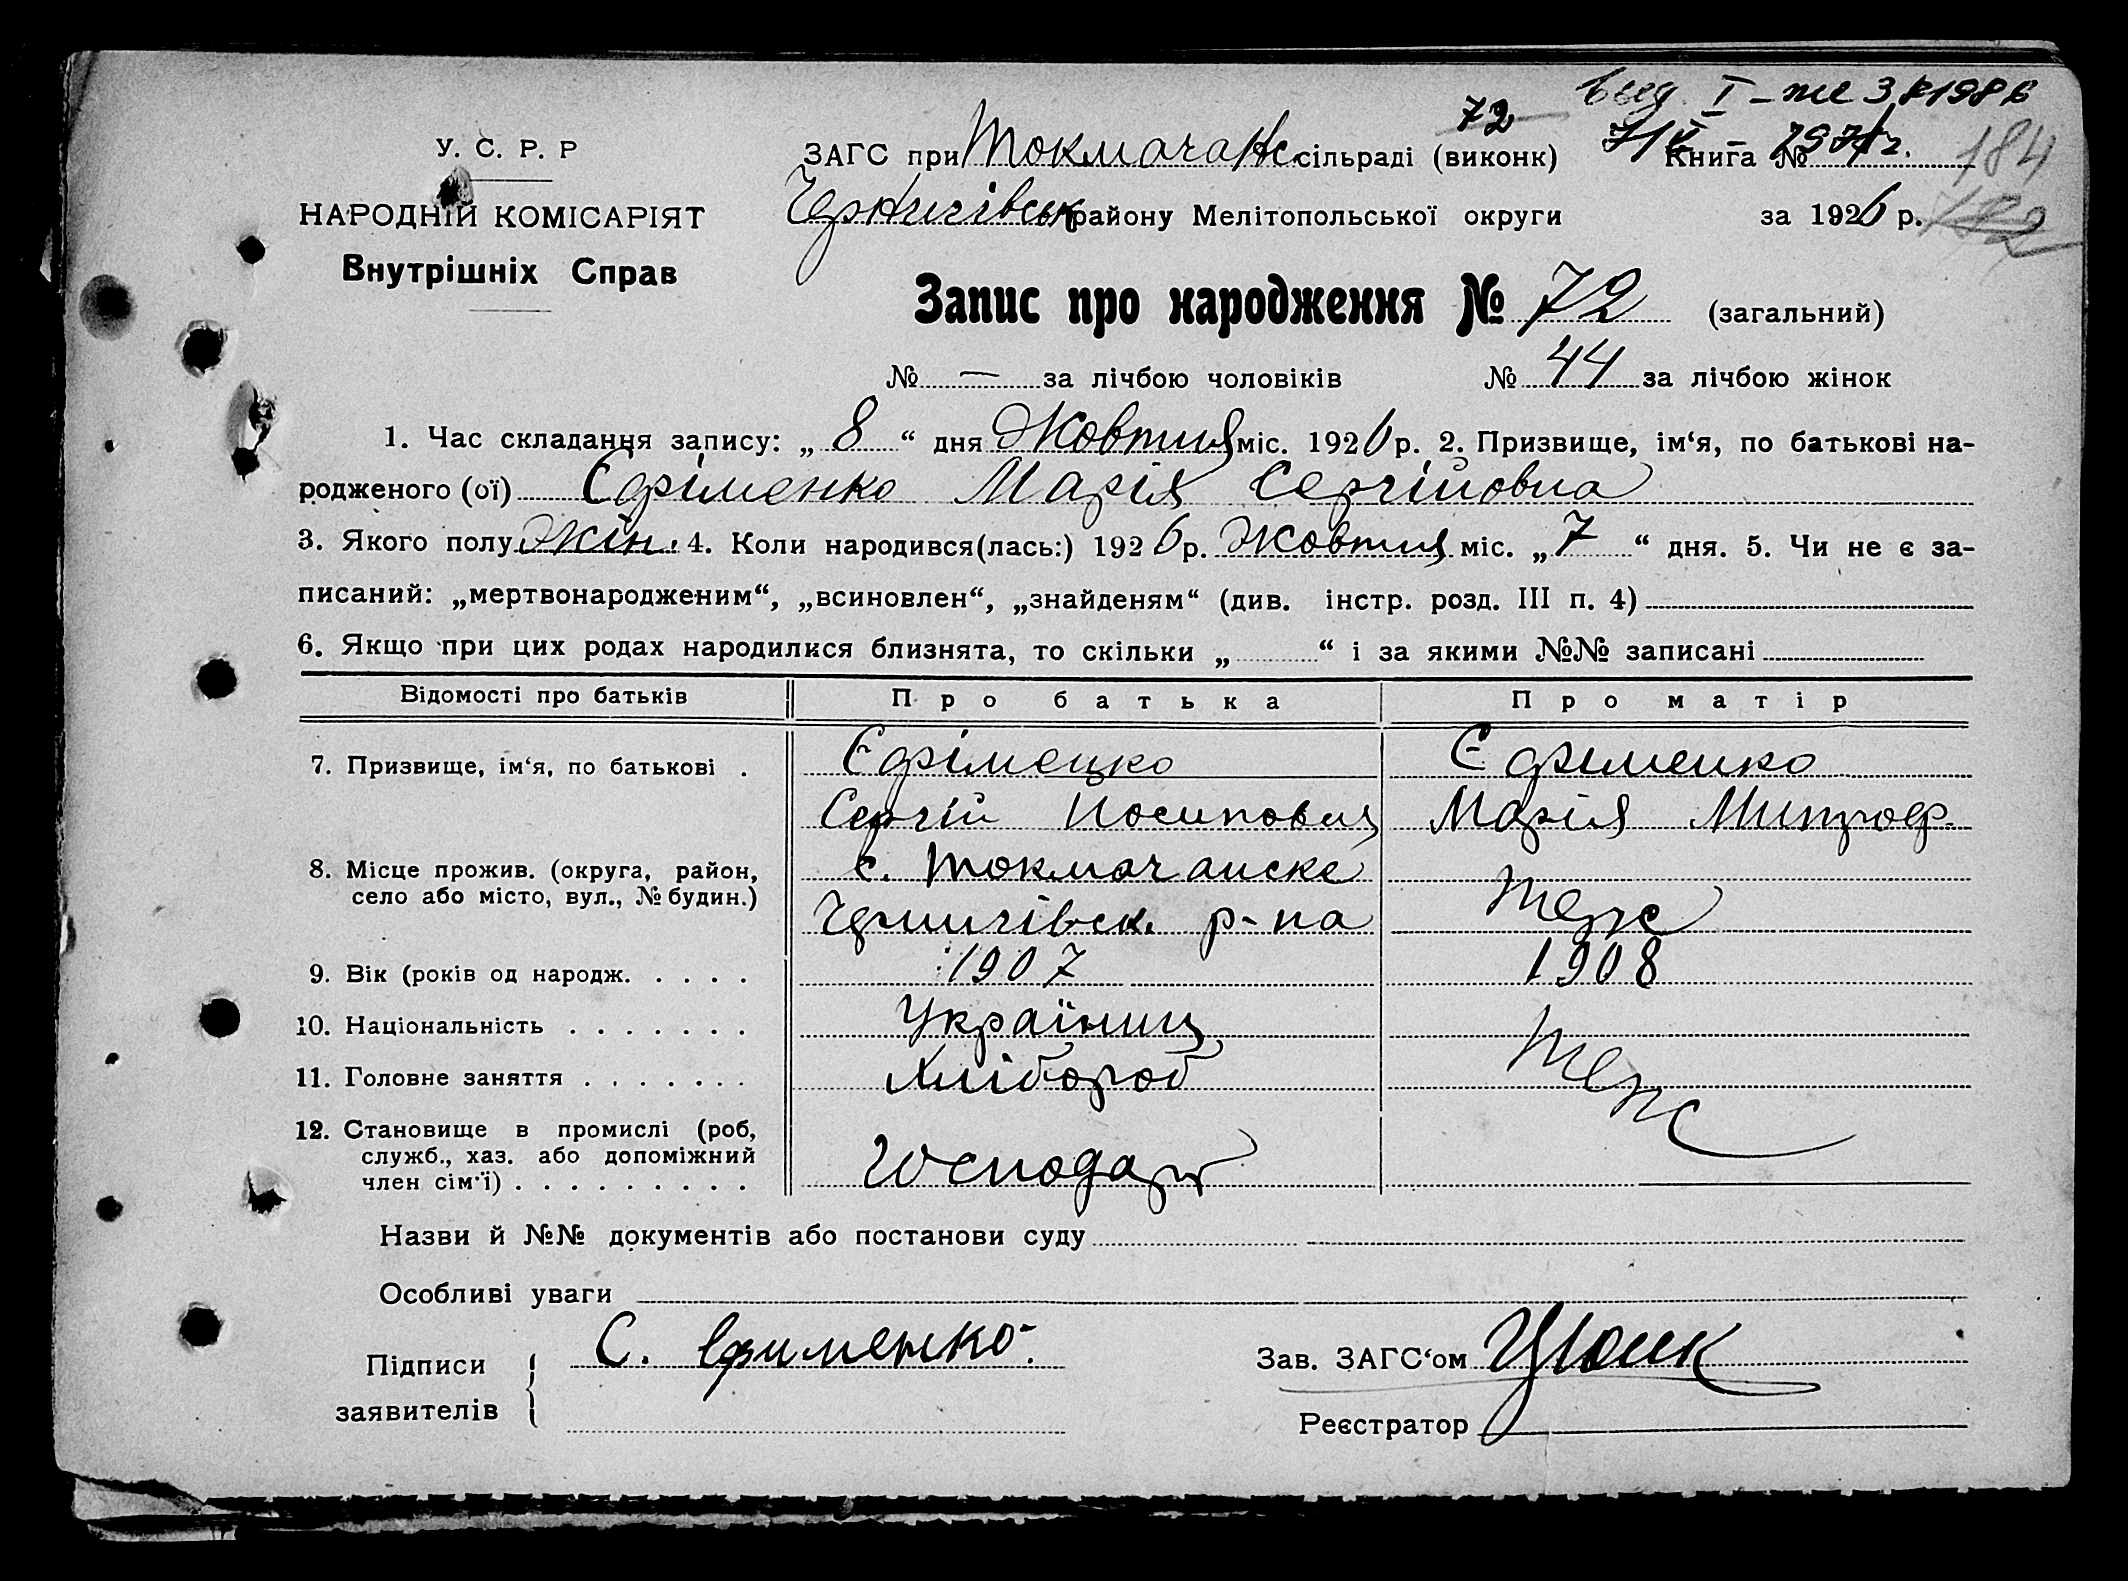 выд. I-же 3 1986
72
У. С. Р. Р
ЗАГС при Токмачанс. сільраді (виконк) Книга № 184
НАРОДНІЙ КОМІСАРІЯТ
Чернигівськ району Мелітопольської округи за 1926 р. 182
Внутрішніх Справ
Запис про народження № 72 (загальний)
№ — за лічбою чоловіків № 44 за лічбою жінок
1. Час складання запису: „ 8 “ дня Жовтня міс. 1926 р. 2. Призвище, ім‘я, по батькові на-
родженого (ої) Єфіменко Марія Сергійовна
3. Якого полу Жін. 4. Коли народився(лась:) 1926 р. Жовтня міс. „ 7 “ дня. 5. Чи не є за-
писаний: „мертвонародженим“, „всиновлен“, „знайденям“ (див. інстр. розд. III п. 4)
6. Якщо при цих родах народилися близнята, то скільки „ “ і за якими №№ записані
Відомості про батьків Про батька Про матір
7. Призвище, ім‘я, по батькові . Єфіменко Єфименко
Сергій Йосипович Марія Митроф.
8. Місце прожив. (округа, район, с. Токмачанске
село або місто, вул., № будин.) Чернигівск. р-на теж
9. Вік (років од народж. . . . . 1907 1908
10. Національність . . . . . . . Українец
11. Головне заняття . . . . . . . Хлібороб теж
12. Становище в промислі (роб,
служб., хаз. або допоміжний Господар
член сім‘ї) . . . . . . . . .
Назви й №№ документів або постанови суду
Особливі уваги
Підписи С. Ефименко. Зав. ЗАГС‘ом
заявителів Реєстратор